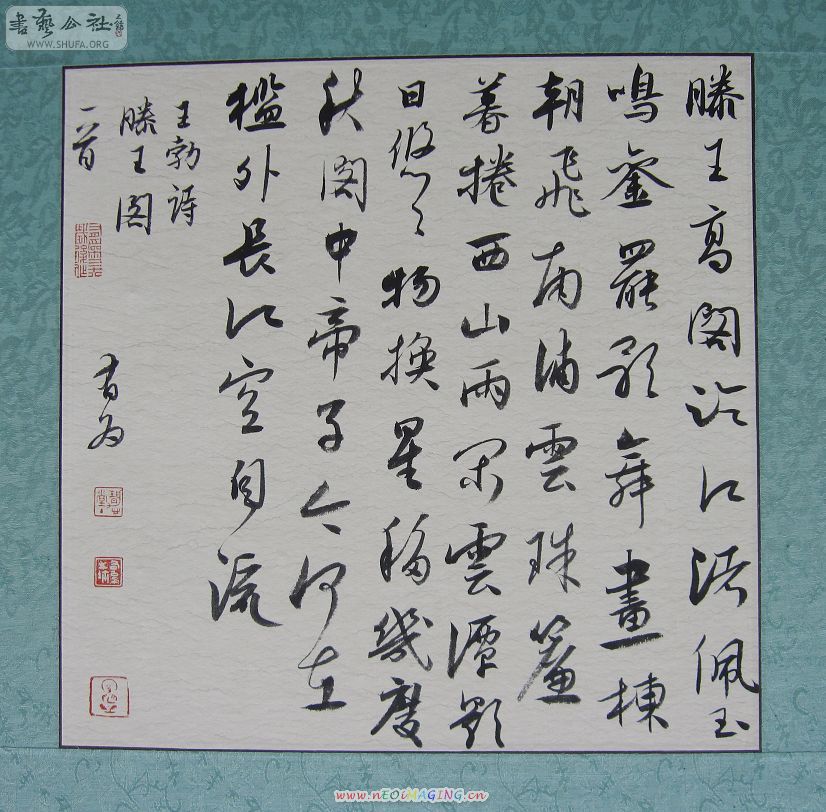 書藝公社
WWW.SHUFA.ORG
滕王高閣临江渚佩玉
鳴鑾罷歌舞畫棟
朝飛南浦雲珠簾
暮捲西山雨閑雲潭影
日悠々物換星移幾度
秋閣中帝子今何在
檻外長江空自流
王勃詩
滕王閣
一首
www.nEOiMAGiNG.cn